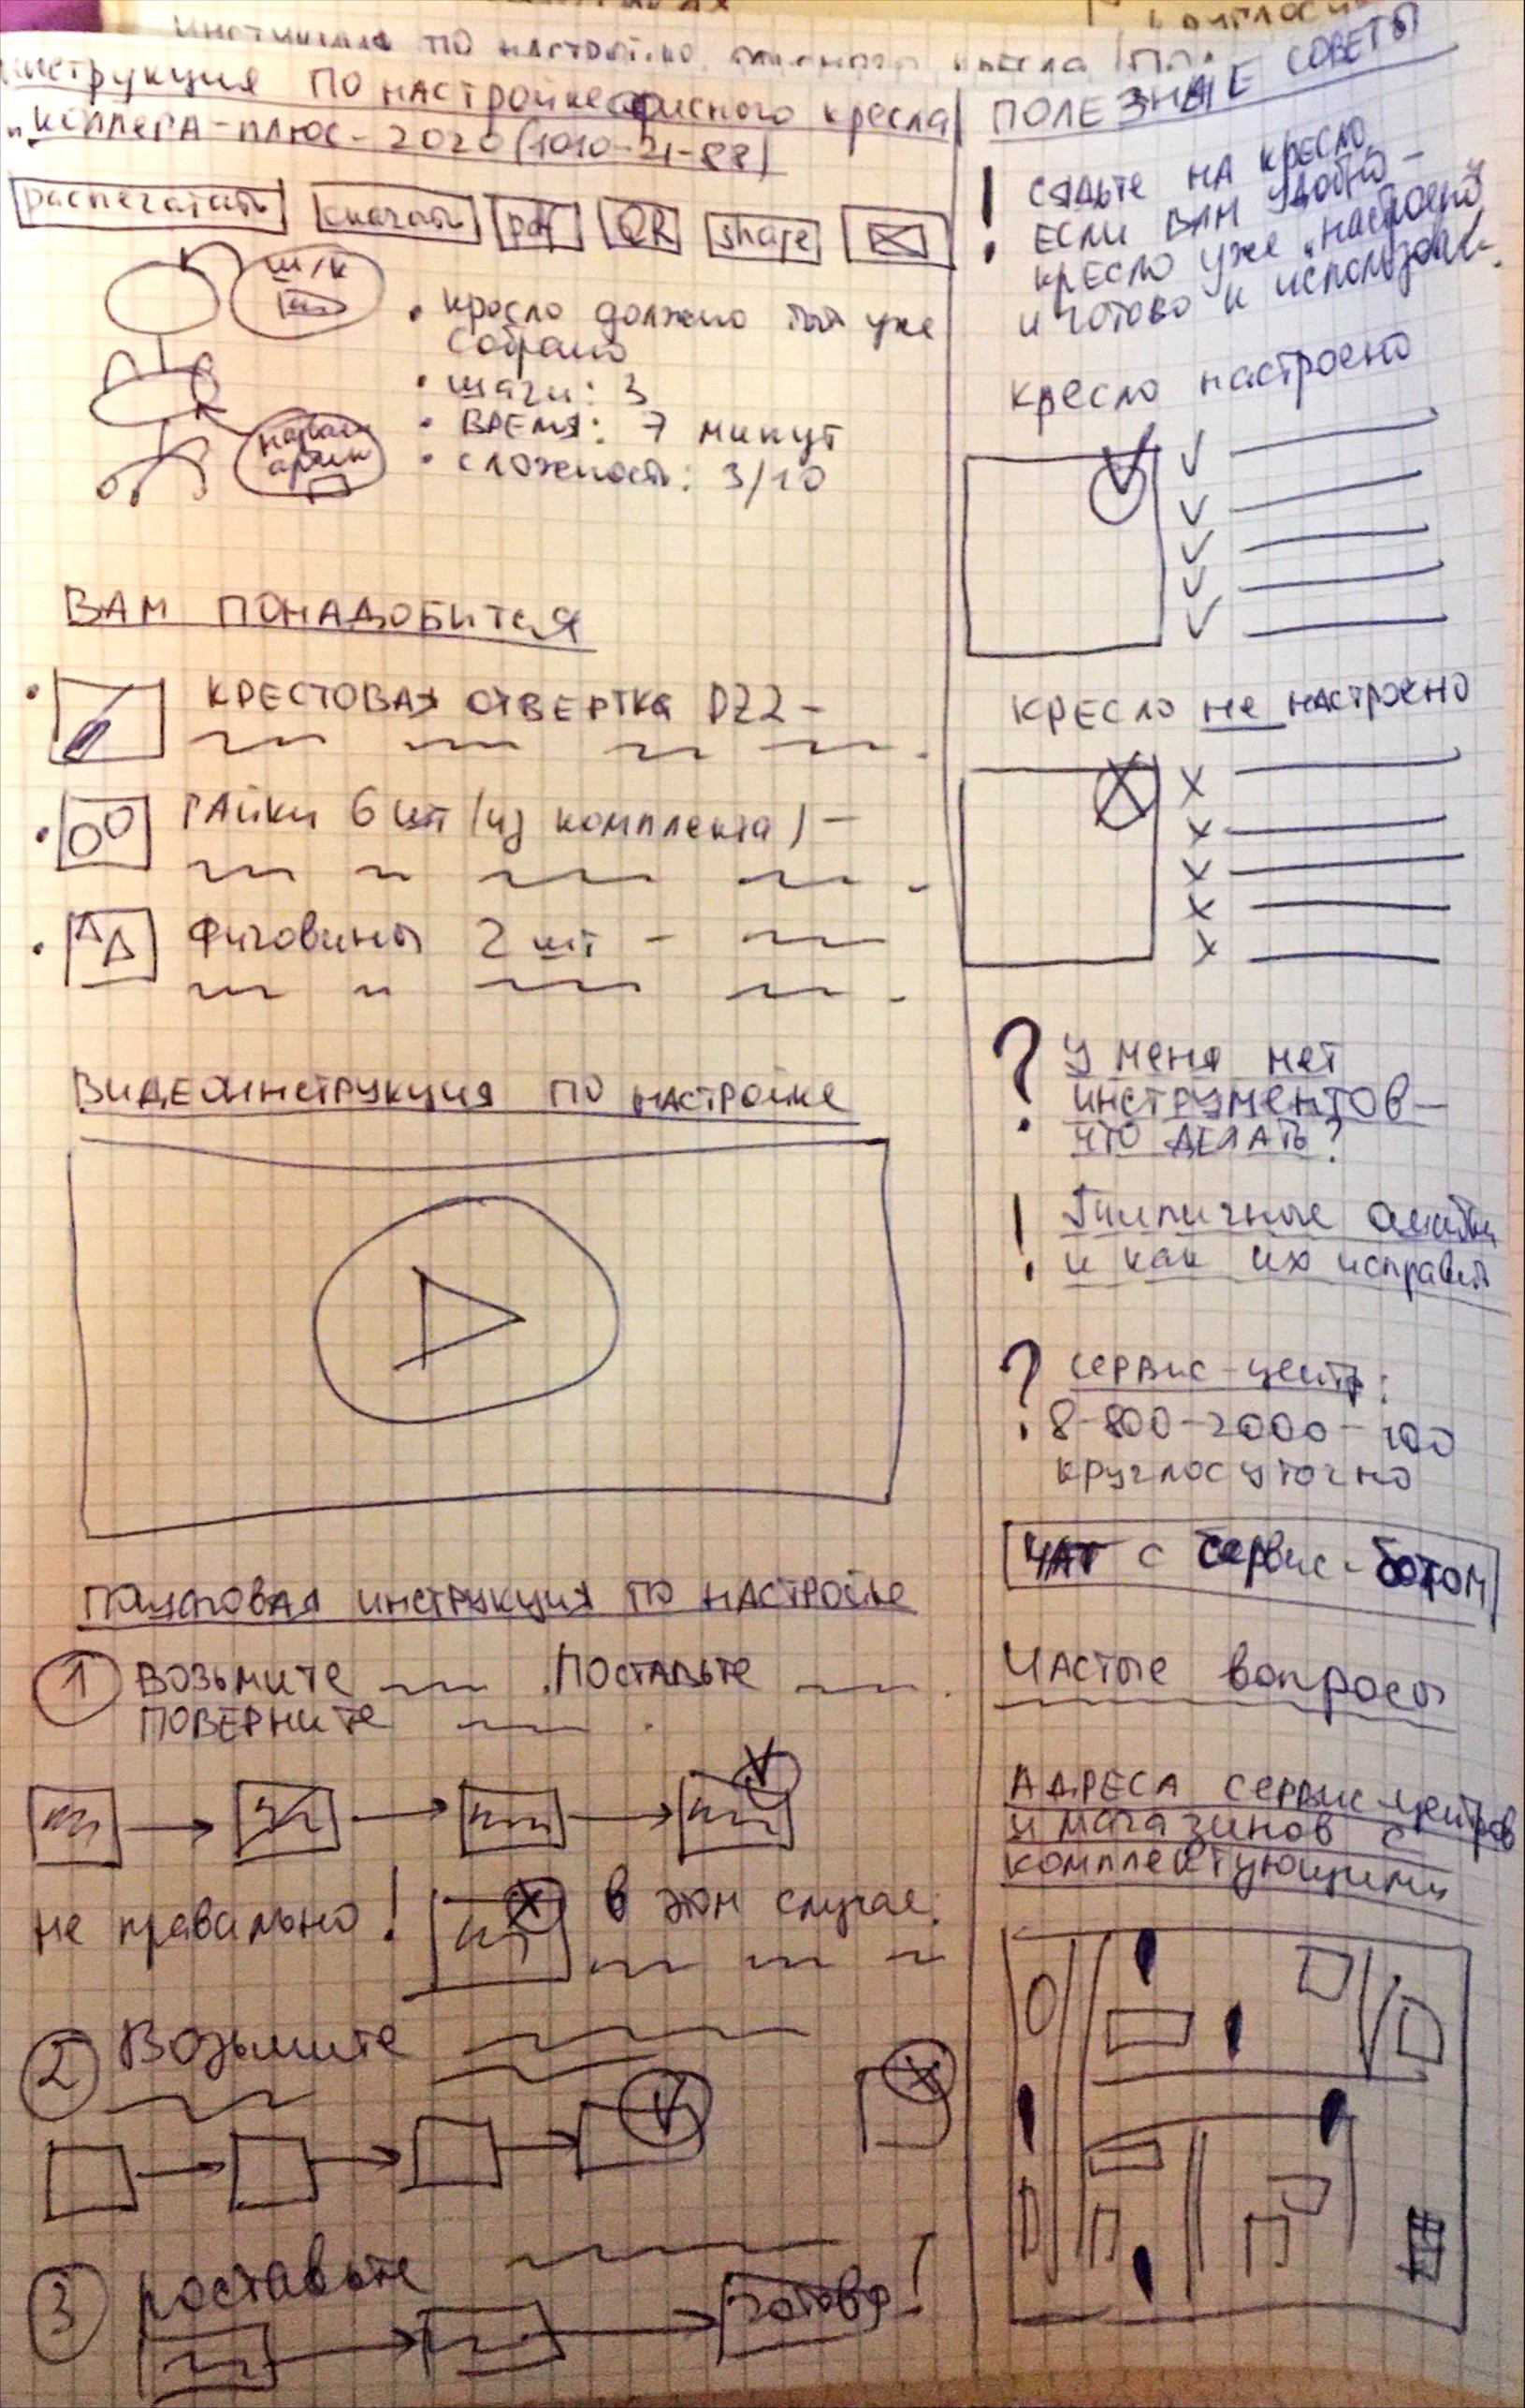 инструкция по настройке офисного кресла
"Коллега-плюс-2020 (1010-21-88)
распечатать скачать pdf QR share
ш/к
артик
• кресло должно быть уже
собрано
• шаги: 3
• ВРЕМЯ: 7 минут
• сложность: 3/10
ВАМ ПОНАДОБИТСЯ
• КРЕСТОВАЯ ОТВЕРТКА PZ2 -
• ГАЙКИ 6 шт (из комплекта) -
• Фиговины 2 шт -
ВИДЕОИНСТРУКЦИЯ ПО НАСТРОЙКЕ
ПОШАГОВАЯ ИНСТРУКЦИЯ ПО НАСТРОЙКЕ
1 ВОЗЬМИТЕ . ПОСТАВЬТЕ .
ПОВЕРНИТЕ .
не правильно! в этом случае:
2 Возьмите
3 поставьте
готово!
ПОЛЕЗНЫЕ СОВЕТЫ
! СЯДЬТЕ НА КРЕСЛО.
ЕСЛИ ВАМ УДОБНО -
КРЕСЛО уже "настроено"
и готово к использов.
кресло настроено
КРЕСЛО не НАСТРОЕНО
? У меня нет
ИНСТРУМЕНТОВ -
ЧТО ДЕЛАТЬ?
! Типичные ошибки
и как их исправить
? сервис-центр:
8-800-2000-100
круглосуточно
ЧАТ с сервис-ботом
Частые вопросы
АДРЕСА сервис-центров
и магазинов с
комплектующими